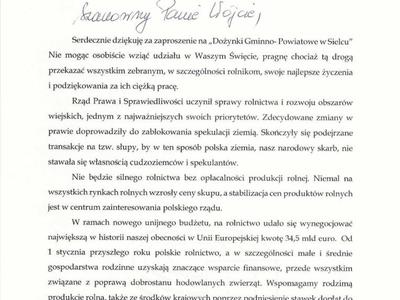 Szanowny Panie Wójcie,
Serdecznie dziękuję za zaproszenie na „Dożynki Gminno- Powiatowe w Sielcu"
Nie mogąc osobiście wziąć udziału w Waszym Święcie, pragnę chociaż tą drogą
przekazać wszystkim zebranym, w szczególności rolnikom, swoje najlepsze życzenia
i podziękowania za ich ciężką pracę.
Rząd Prawa i Sprawiedliwości uczynił sprawy rolnictwa i rozwoju obszarów
wiejskich, jednym z najważniejszych swoich priorytetów. Zdecydowane zmiany w
prawie doprowadziły do zablokowania spekulacji ziemią. Skończyły się podejrzane
transakcje na tzw. słupy, by w ten sposób polska ziemia, nasz narodowy skarb, nie
stawała się własnością cudzoziemców i spekulantów.
Nie będzie silnego rolnictwa bez opłacalności produkcji rolnej. Niemal na
wszystkich rynkach rolnych wzrosły ceny skupu, a stabilizacja cen produktów rolnych
jest w centrum zainteresowania polskiego rządu.
W ramach nowego unijnego budżetu, na rolnictwo udało się wynegocjować
największą w historii naszej obecności w Unii Europejskiej kwotę 34,5 mld euro. Od
1 stycznia przyszłego roku polskie rolnictwo, a w szczególności małe i średnie
gospodarstwa rodzinne uzyskają znaczące wsparcie finansowe, przede wszystkim
związane z poprawą dobrostanu hodowlanych zwierząt. Wspomagamy rodzimą
produkcję rolną, także ze środków krajowych poprzez podniesienie stawek dopłat do